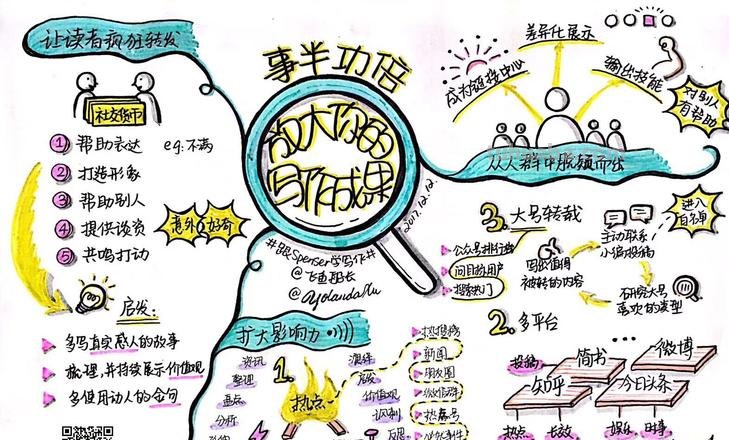 让读者疯狂转发
社交货币
1 帮助表达 eg:不满
2 打造形象
3 帮助别人
4 提供谈资
5 共鸣打动
意外 好奇
启发:
多写真实感人的故事
梳理,并持续展示价值观
多使用动人的金句
事半功倍
放大你的
写作成果
2017.12.12.
#跟Spenser学写作#
@飞鱼船长
扩大影响力
1.
热点
资讯
整理
盘点
分析
演绎
价值观
热搜榜
新闻
朋友圈
微信群
差异化展示
成为链接中心
输出技能
对别人
有帮助
从人群中脱颖而出
3. 大号转载
公众号排行榜
同目标用户
搜索热门
写出值得
被转的内容
主动联系
小编投稿
进入
白名单
研究大号
喜欢的类型
2. 多平台
投稿
简书
微博
知乎
今日头条
热点
长效
娱乐
时事